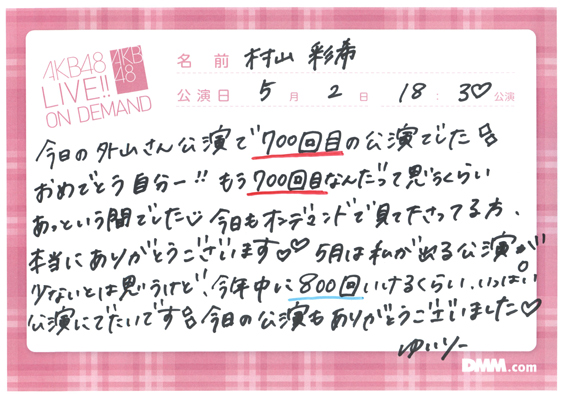 AKB48
LIVE!!
ON DEMAND
AKB
48
名前 村山 彩希
公演日 5月2日 18:30公演
今日の外山さん公演で700回目の公演でした
おめでとう自分ー!!もう700回目なんだって思うくらい
あっという間でした 今日もオンデマンドで見て下さってる方、
本当にありがとうございます♡♡ 5月は私が出る公演が
少ないとは思うけど、今年中に800回いけるくらい、いっぱい
公演にでたいです 今日の公演もありがとうございました♡
ゆいりー
DMM.com